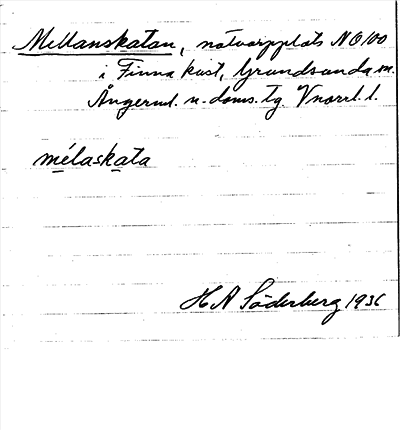 Mellanskatan, notvarpplats NO100
i Finna kust, Grundsunda sn.
Ångerml. n. doms. tg. Vnorrl. l.
mélaskata
H A Söderberg 1936